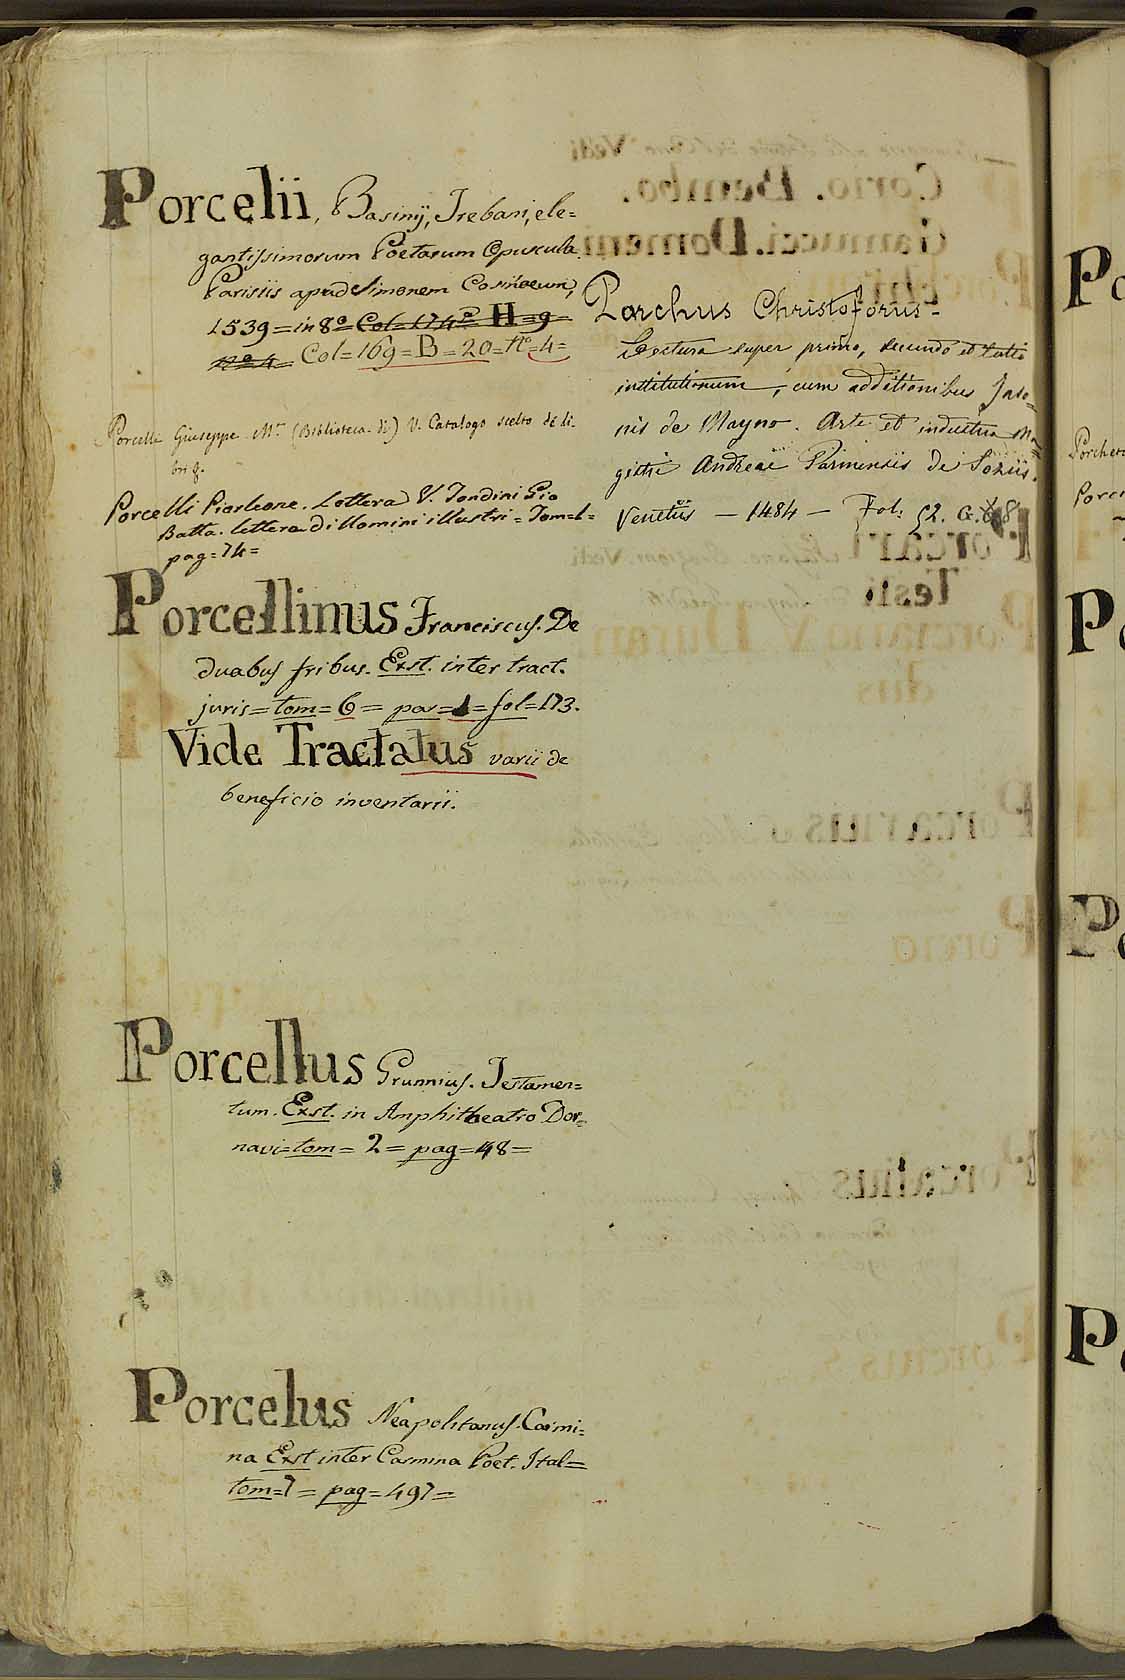 Porcelii, Basinij, Trebani, ele=
gantissimorum Poetarum Opuscula.
Parisiis apud Simonem
1539 = in 8º = Col = 174 = H = 9 =
nº 4 Col = 169 = B = 20 = nº = 4 =
Porcelli Giuseppe Mª (Biblioteca di) V. Catalogo scelto de li-
bri &.
Porcelli Pierleone. Lettera V. Tondini Gio
Batta. lettere di Uomini illustri = Tom = 1 =
pag = 74 =
Porcellinus Franciscus. De
duabus fribus. Exst. inter tract.
juris = tom = 6 = par = 1 = fol = 173.
Vide Tractatus varii de
beneficio inventarii.
Porcellus Grunnius. Testamen=
tum. Exst. in Amphitheatro Dor=
navi = tom = 2 = pag = 48 =
Porcelus Neapolitanus. Carmi=
na Exst inter Carmina Poet. Ital =
tom = 7 = pag = 497 =
Porchus Christoforus =
Lectura super primo, secundo et tertio
institutionum, cum additionibus Jaso=
nis de Mayno. Arte et industria Ma=
gistri Andreae Parmensis de
Venetiis — 1484 — Fol: 52. G. 8
Po
Porcher
Porce
Po
Po
Po